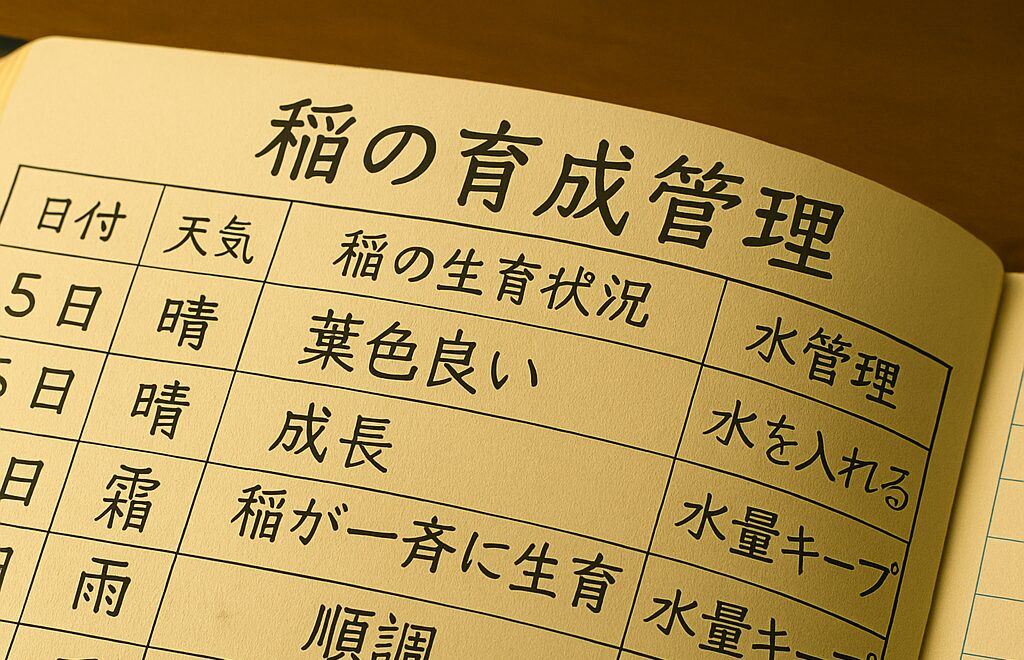 稲の育成管理
日付 天気 稲の生育状況 水管理
5日 晴 葉色良い 水を入れる
5日 晴 成長 水量キープ
日 霜 稲が一斉に生育 水量キープ
日 雨 順調